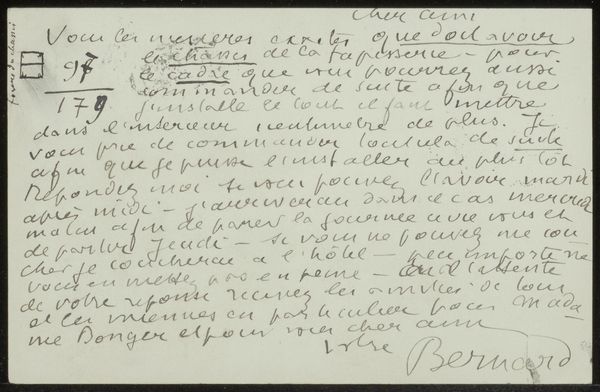 cher ami
Voici les mesures exactes que doit avoir
le chassis de la tapisserie - pour
le cadre que vous pourrez aussi
commander de suite afin que
j'installe le tout il faut mettre
dans l'intérieur 1 centimètre de plus. Je
vous prie de commander tout cela de suite
afin que je puisse l'installer au plus tôt
Répondez moi si vous pouvez l'avoir mardi
après midi - j'arriverai dans ce cas mercredi
matin afin de passer la journée avec vous et
de partir Jeudi - si vous ne pouvez me cou
cher je coucherai à l'hôtel - peu importe ne
vous en mettez pas en peine - Dans l'attente
de votre réponse recevez les amitiés de tous
et les miennes en particulier pour Mada
me Bonger et pour vous cher ami
Votre
Bernard
97
179
forme du chassis